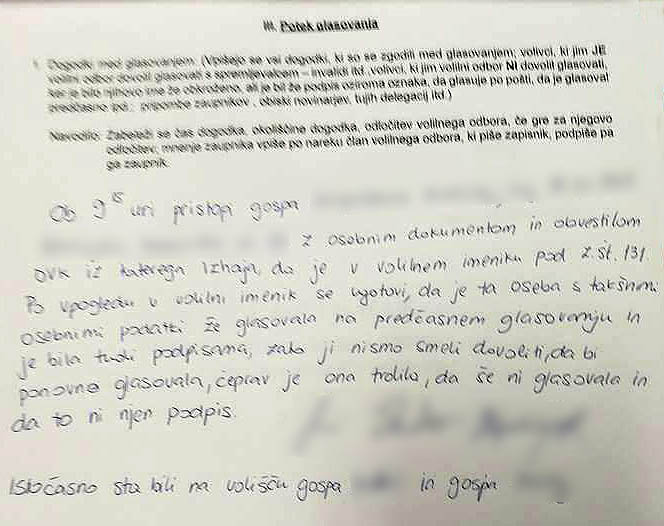 III. Potek glasovanja
1. Dogodki med glasovanjem: (Vpišejo se vsi dogodki, ki so se zgodili med glasovanjem; volivci, ki jim JE
volilni odbor dovolil glasovati s spremljevalcem – invalidi itd. volivci, ki jim volilni odbor NI dovolil glasovati,
ker je bilo njihovo ime že obkroženo, ali je bil že podpis oziroma oznaka, da glasuje po pošti, da je glasoval
predčasno ipd.; pripombe zaupnikov, obiski novinarjev, tujih delegacij itd.)
Navodilo: Zabeleži se čas dogodka, okoliščine dogodka, odločitev volilnega odbora, če gre za njegovo
odločitev; mnenje zaupnika vpiše po nareku član volilnega odbora, ki piše zapisnik, podpiše pa
ga zaupnik.
Ob 9 15 uri pristopi gospa
z osebnim dokumentom in obvestilom
OVK iz katerega izhaja, da je v volilnem imeniku pod z.št. 131.
Po vpogledu v volilni imenik se ugotovi, da je ta oseba s takšnimi
osebnimi podatki že glasovala na predčasnem glasovanju in
je bila tudi podpisana, zato ji nismo smeli dovoliti, da bi
ponovno glasovala, čeprav je ona trdila, da še ni glasovala in
da to ni njen podpis.
Istočasno sta bili na volišču gospa in gospa